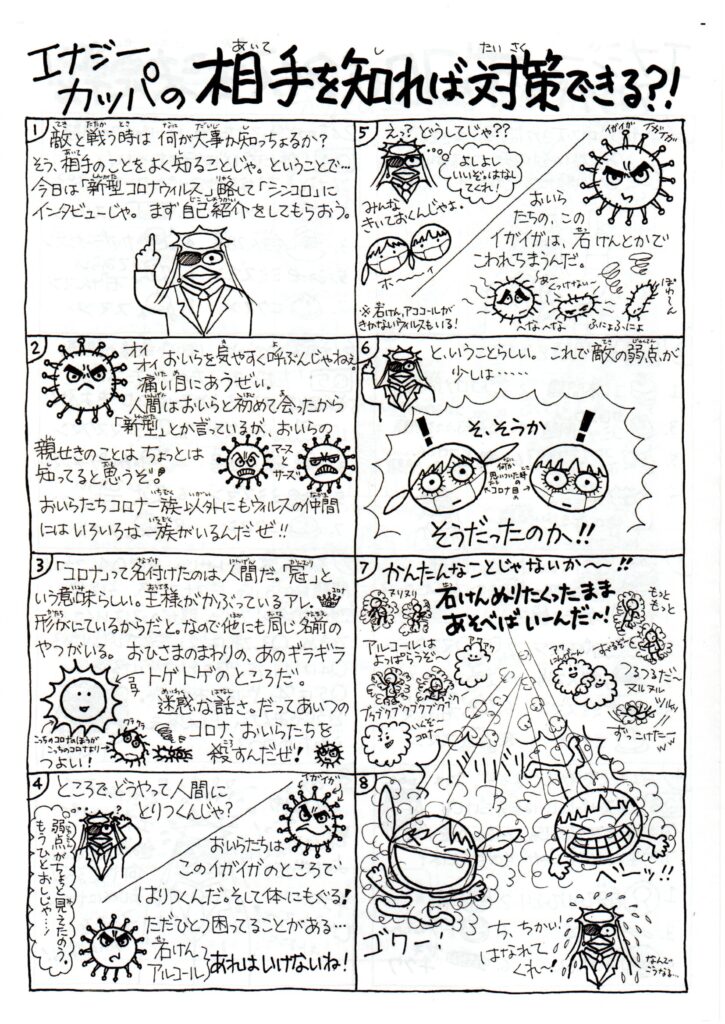 エナジーカッパの 相手を知れば対策できる?!
あいて
し
たいさく
1
敵と戦う時は 何が大事か知っちょるか?
そう、相手のことをよく知ることじゃ。ということで…
今日は「新型コロナウイルス」略して「シンコロ」に
インタビューじゃ。まず自己紹介をしてもらおう。
2
オイ
オイ
おいらを気やすく呼ぶんじゃねぇ。
痛い目にあうぜい。
人間はおいらと初めて会ったから
「新型」とか言っているが、おいらの
親せきのことは、ちょっとは
知ってると思うぞ!
マースとサーズ
おいらたちコロナ一族以外にもウィルスの仲間
にはいろいろな一族がいるんだぜ!!
3
「コロナ」って名付けたのは人間だ。「冠」と
いう意味らしい。王様がかぶっているアレ。
コロナ
形がにているからだと。なので他にも同じ名前の
やつがいる。おひさまのまわりの、あのギラギラ
トゲトゲのところだ。
コロナ
迷惑な話さ。だってあいつの
コロナ、おいらたちを
殺すんだぜ!
クラクラ
こっちのコロナのほうが
こっちのコロナより
つよい!
4
ところで、どうやって人間に
とりつくんじゃ?
弱点がちょっと見えたのう。
もうひとおしじゃ…!
イガイガ
おいらたちは
このイガイガのところで
はりつくんだ。そして体にもぐる!
ただひとつ困ってることがある…
石けん
アルコール
あれはいけないね!
5
えっ?どうしてじゃ??
よしよし
いいぞ。はなし
てくれ!
みんな
きいておくんじゃよ。
ホ〜〜イ
※石けん、アルコールが
きかないウィルスもいる!
イガイガ
イガイガ
おいら
たちの、この
イガイガは、石けんとかで
こわれちまうんだ。
あ〜
くっつけない〜
ぽわ〜ん
へなへな
ふにょふにょ
6
と、いうことらしい。これで敵の弱点が
少しは……
そ、そうか
何か
思いついた時の
コロナ目
そうだったのか!!
7
かんたんなことじゃないか〜!!
石けんぬりたくったまま
あそべばいーんだ〜!
ヌリヌリ
もっと
もっと
アルコールは
よっぱらうぞ〜
アワアワ
つるつるだ〜
ヌルヌル
ツルッ
ずっこけたーッ
ブクブクブクブクブクブク
コロナ〜
バリバリ
8
ゴワー!
ベーッ!!
ち、ちかい!
はなれて
くれ〜!
なんで
こうなる…